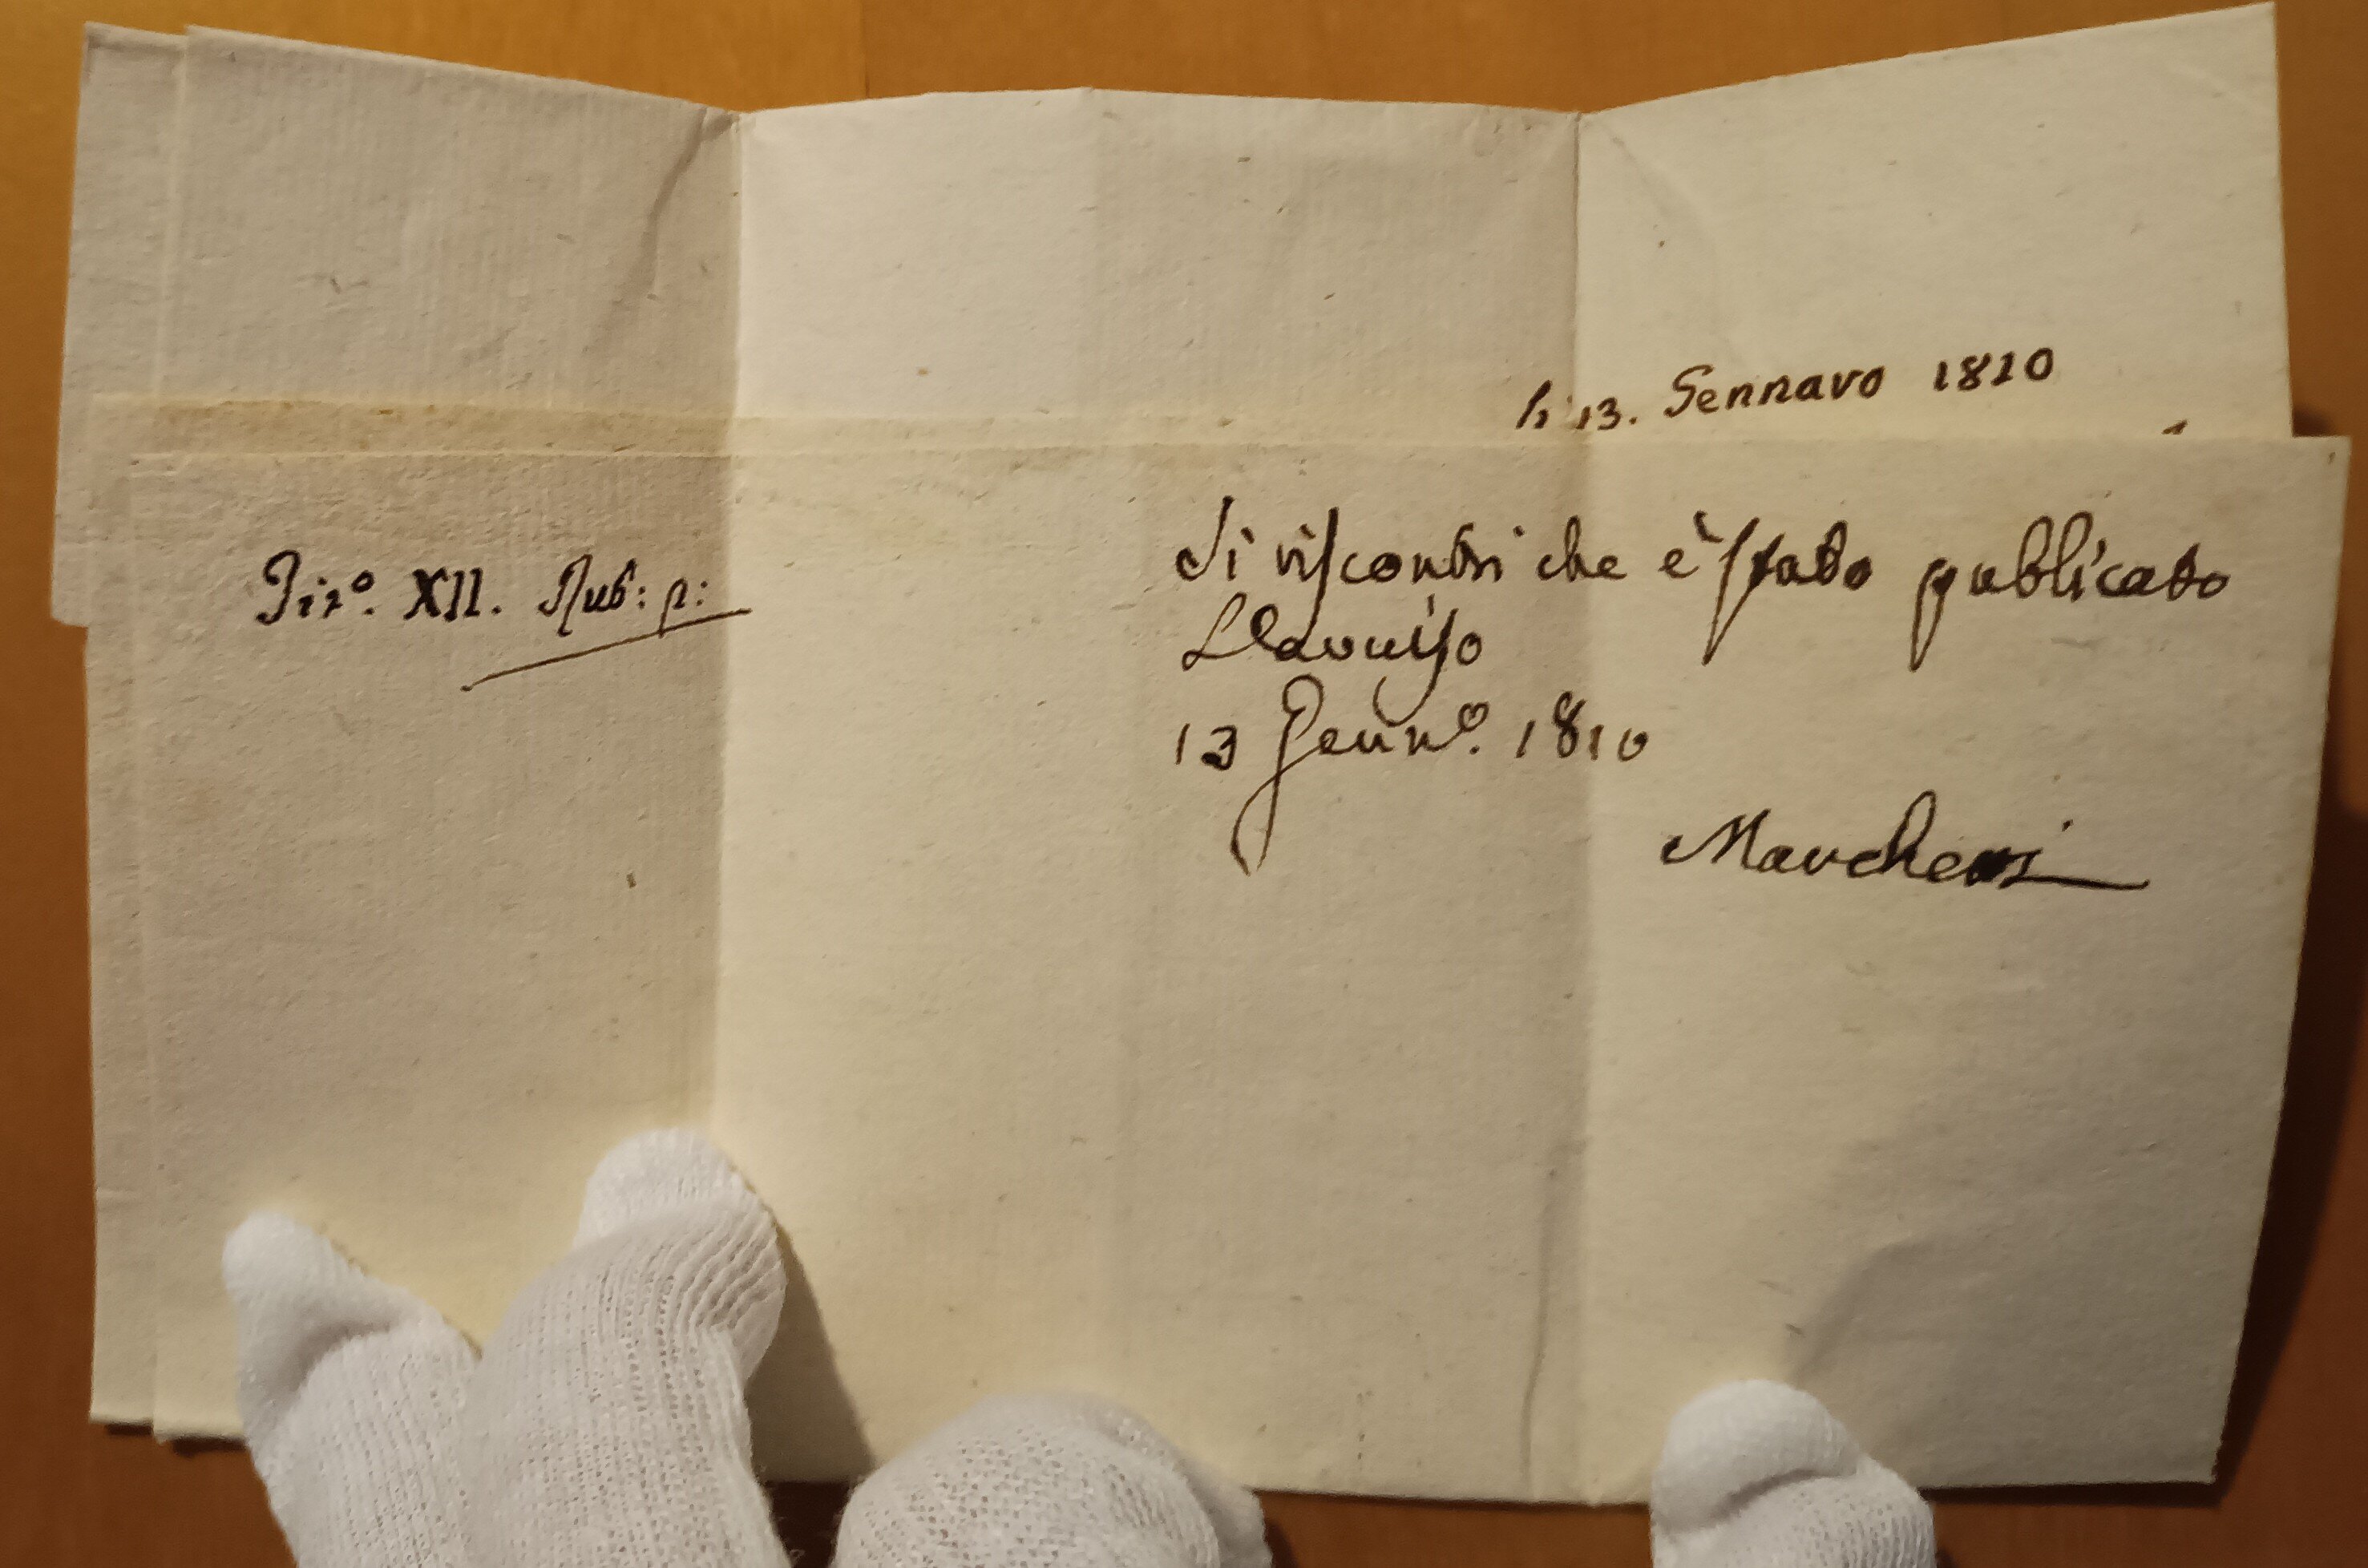 li 13. Gennaro 1810
Tit.º XII. Rub: p:
Si riscontri che è stato publicato
L'avviso
13 Genn.º 1810